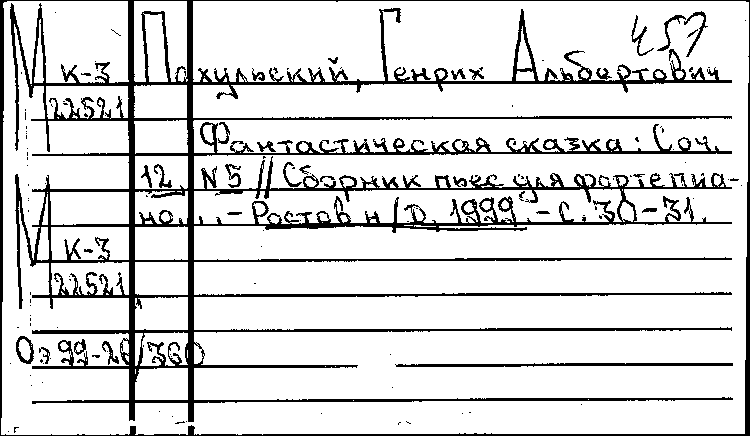 457
М К-3 Пахульский, Генрих Альбертович
22521
Фантастическая сказка : Соч.
12, N 5 // Сборник пьес для фортепиа-
но... - Ростов н/Д, 1999. - С. 30-31.
М К-3
22521
Оэ 99-26/360